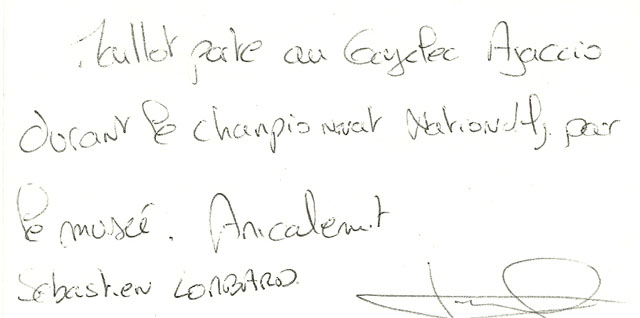 Maillot porte au Gazelec Ajaccio
durant le championnat National, pour
le musée. Amicalement
Sébastien LOMBARD